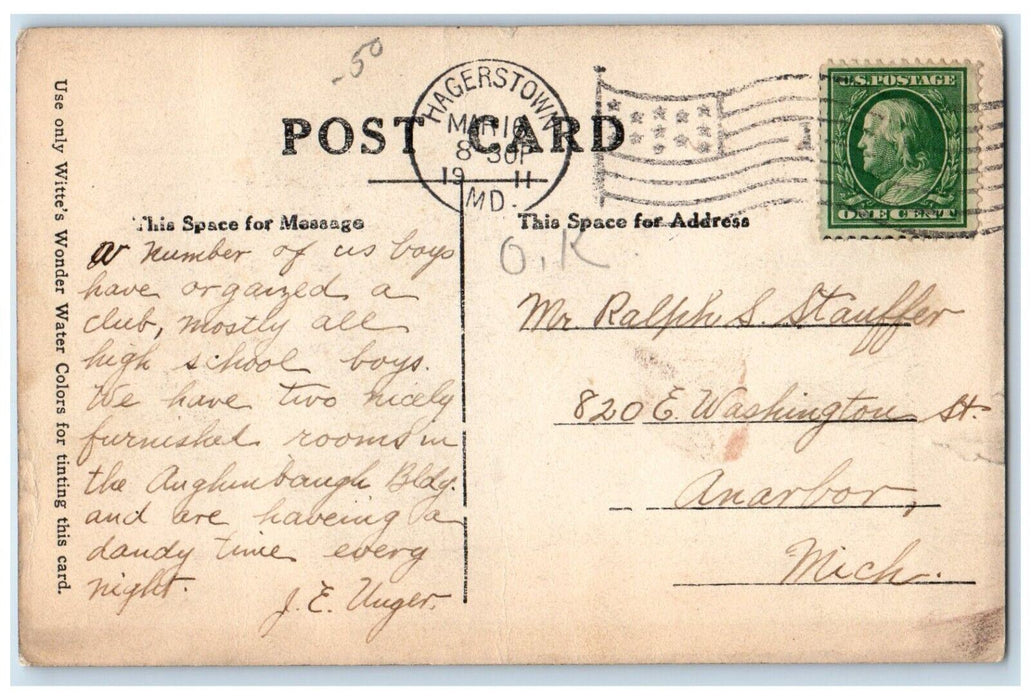 -50
HAGERSTOWN
MAR 16
8 30P
19 11
MD.
POST CARD
U.S. POSTAGE
ONE CENT
Use only Witte's Wonder Water Colors for tinting this card.
This Space for Message
A number of us boys
have organzed a
club, mostly all
high school boys.
We have two nicely
furnished rooms in
the Aughinbaugh Bldg.
and are haveing a
dandy time every
night.
J. E. Unger.
This Space for Address
O.K
Mr Ralph S. Stauffer
820 E. Washington St.
Anarbor,
Mich.